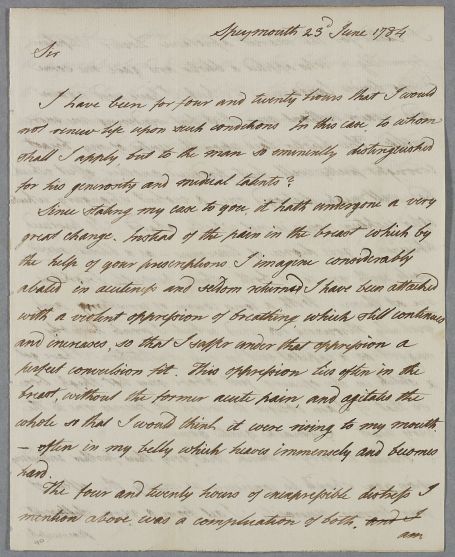 Speymouth 23d June 1784
Sir
I have been for four and twenty hours that I would
not renew life upon such conditions In this case, to whom
shall I apply but to the man so eminently distinguished
for his generosity and medical talents?
Since stating my case to you, it hath undergone a very
great change. Instead of the pain in the breast which by
the help of your prescriptions I imagine considerably
abated in acuteness and seldom returned, I have been attacked
with a violent oppression of breathing which still continues
and increases, so that I suffer under that oppression a
perfect convulsion fit. This oppression lies often in the
breast, without the former acute pain, and agitates the
whole so that I would think it were rising to my mouth
— often in my belly which heaves immensely and becomes
hard.
The four and twenty hours of inexpressible distress I
mention above, was a complication of both, and I
am